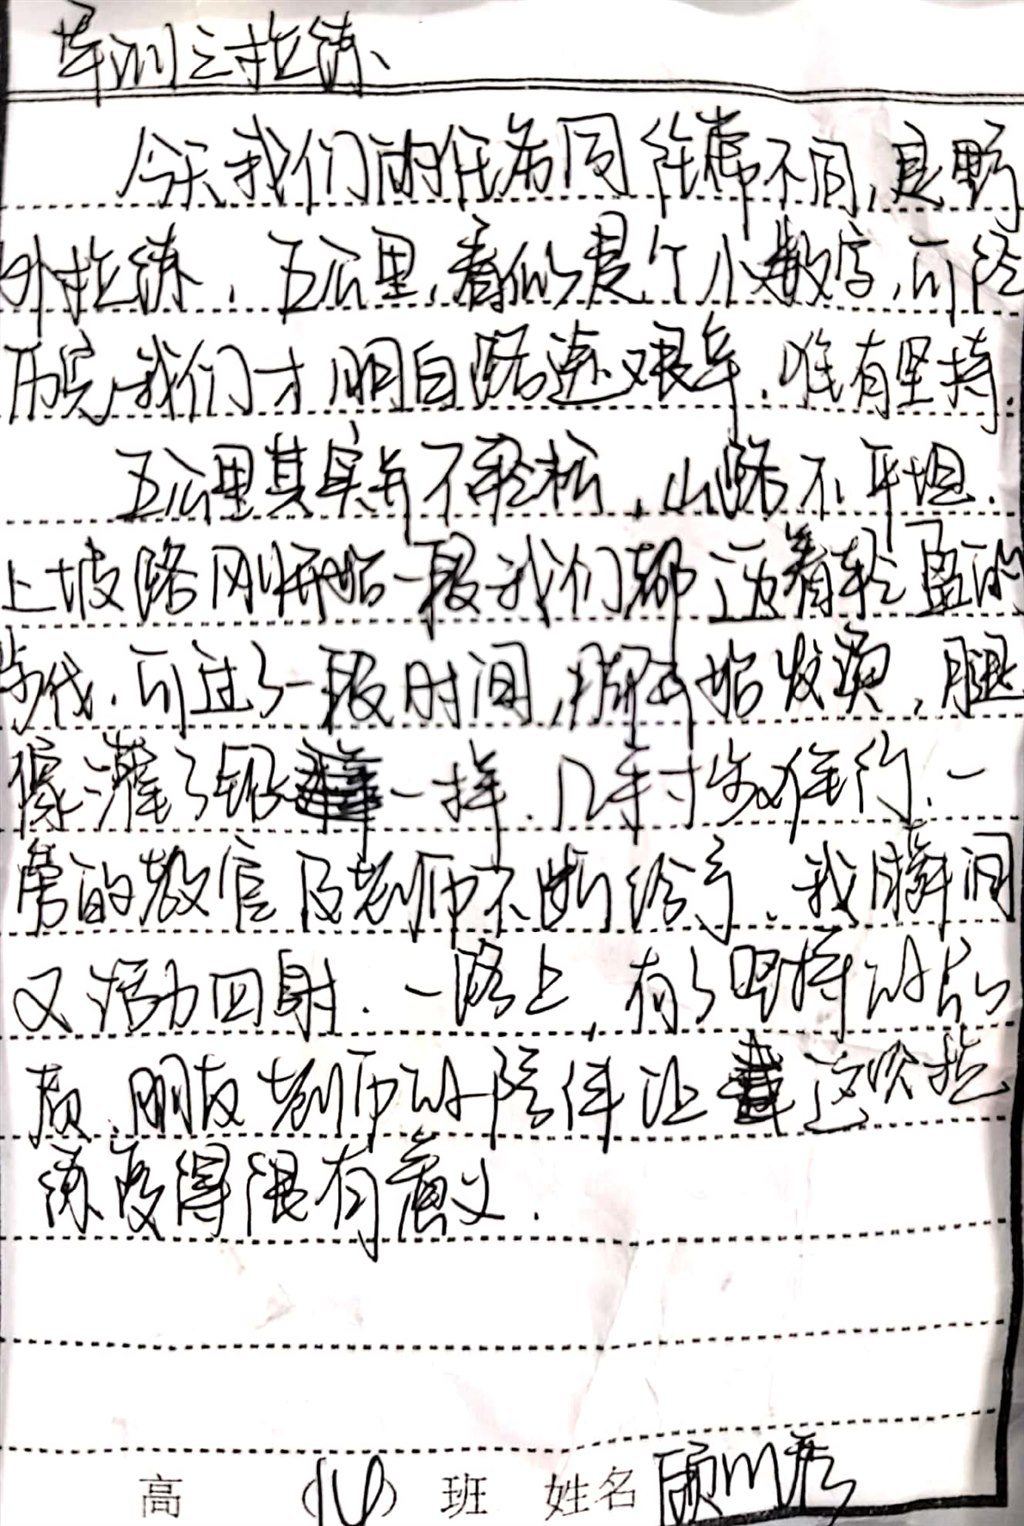 军训之拉练
今天我们的任务同往常不同,是野
外拉练,五公里,看似是个小数字,可经
历完我们才明白路途艰辛,唯有坚持.
五公里其实并不轻松,山路不平坦.
上坡路刚开始一段我们都迈着轻盈的
步伐.可过了一段时间,脚开始发烫,腿
像灌了铅一样.几乎寸步难行.一
旁的教官及老师不断给予.我瞬间
又活力四射.一路上,有了坚持的品
质、朋友老师的陪伴让这次拉
练变得很有意义.
高 班 姓名 顾川